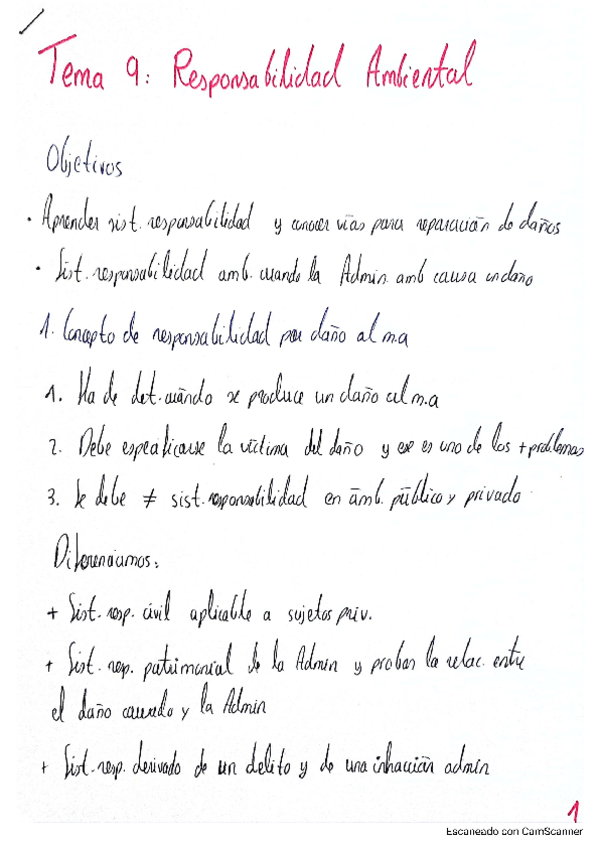 Tema 9: Responsabilidad Ambiental
Objetivos
· Aprender sist. responsabilidad y conocer vías para reparación de daños
· Sist. responsabilidad amb. cuando la Admin. amb causa un daño
1. Concepto de responsabilidad por daño al m.a
1. Ha de det. cuándo se produce un daño al m.a
2. Debe especificarse la víctima del daño y ese es uno de los + problemas
3. Se debe ≠ sist. responsabilidad en ámb. público y privado
Diferenciamos:
+ Sist. resp. civil aplicable a sujetos priv.
+ Sist. resp. patrimonial de la Admin y probar la relac. entre
el daño causado y la Admin
+ Sist. resp. derivado de un delito y de una infracción admin
1
Escaneado con CamScanner